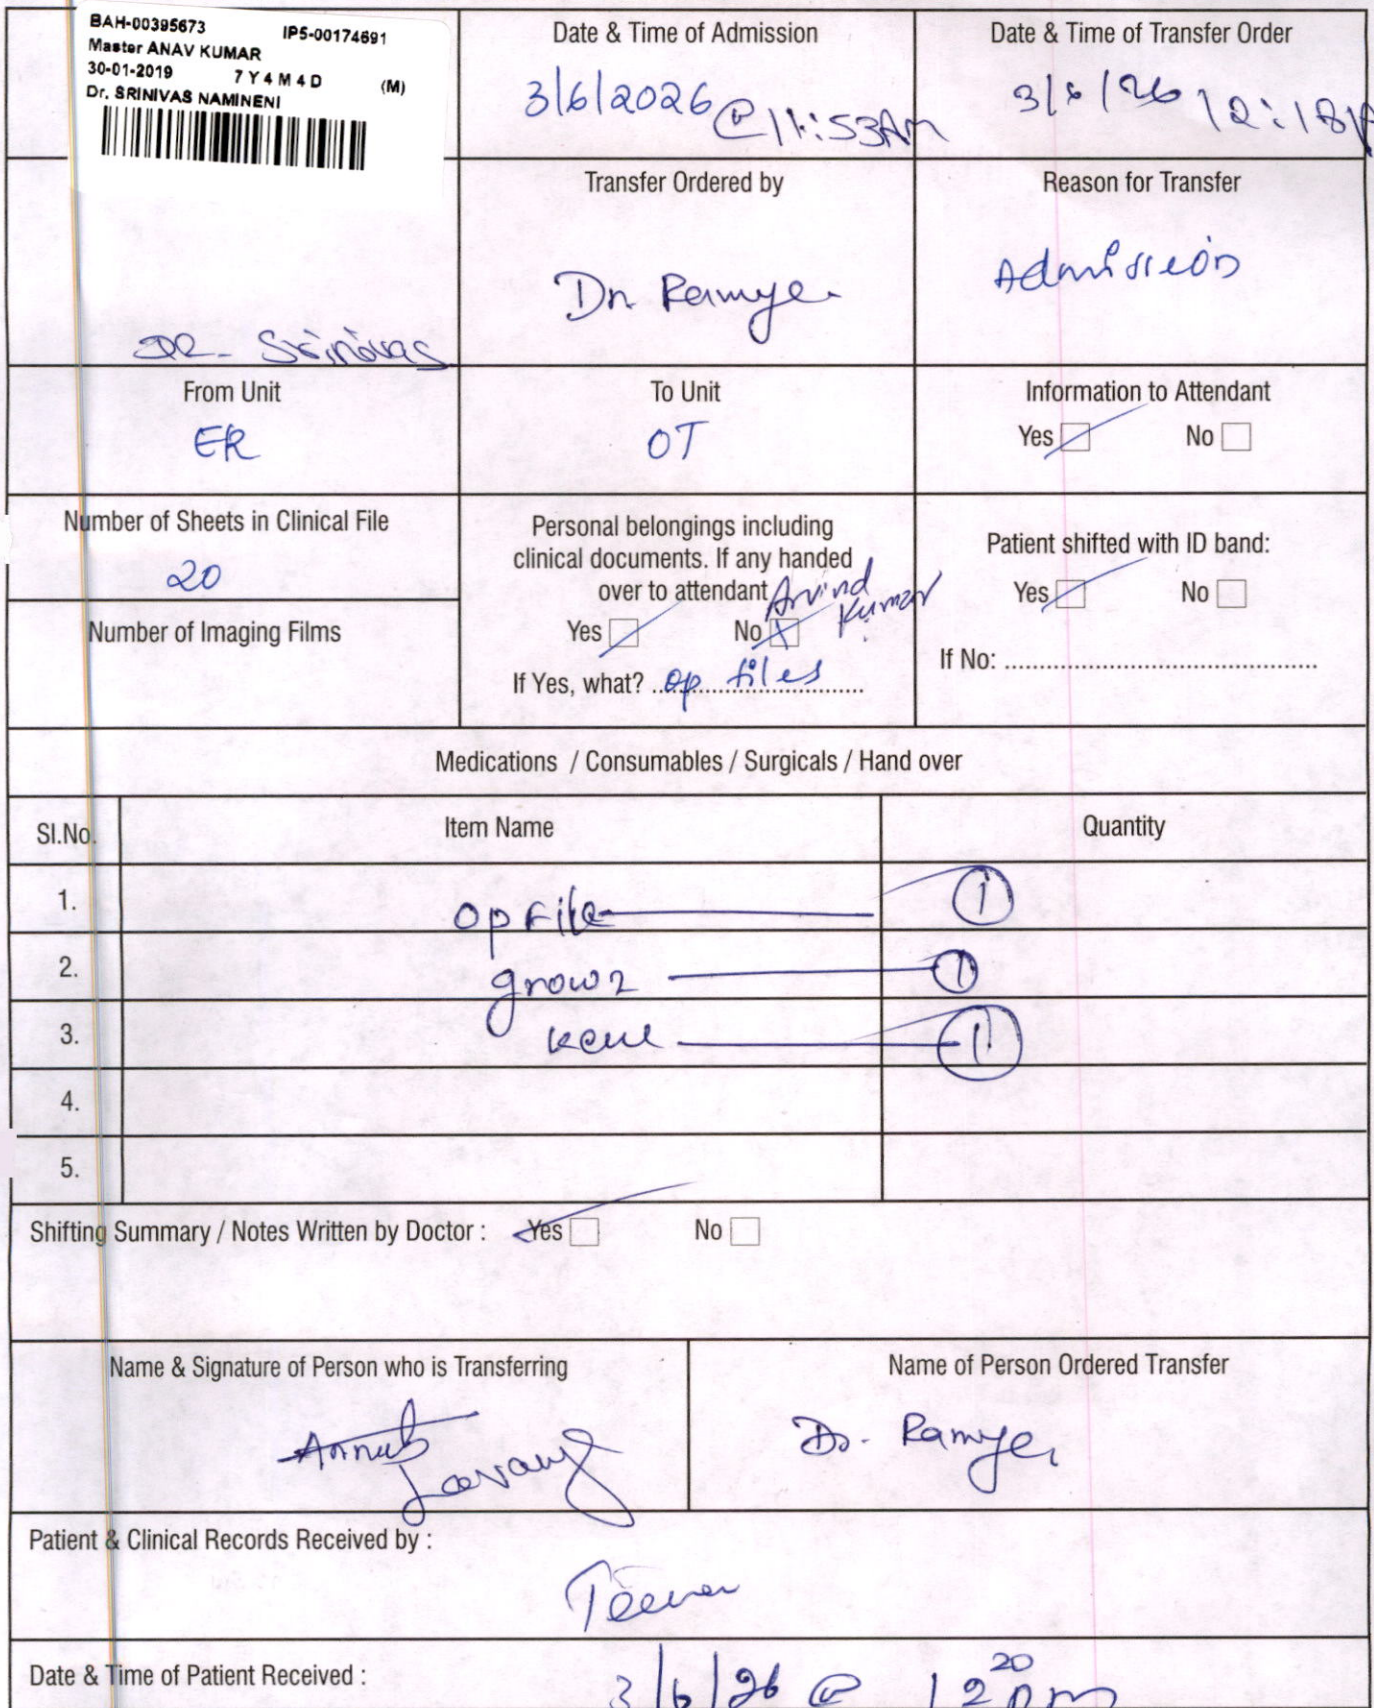 BAH-00395673 IP5-00174691
Master ANAV KUMAR
30-01-2019 7 Y 4 M 4 D (M)
Dr. SRINIVAS NAMINENI
Date & Time of Admission
3/6/2026 @ 11:53AM
Date & Time of Transfer Order
3/6/26 12:18
Dr - Srinivas
Transfer Ordered by
Dr. Ramya
Reason for Transfer
Admission
From Unit
ER
To Unit
OT
Information to Attendant
Yes No
Number of Sheets in Clinical File
20
Number of Imaging Films
Personal belongings including
clinical documents. If any handed
over to attendant Arvind
Kumar
Yes No
If Yes, what? op files
Patient shifted with ID band:
Yes No
If No:
Medications / Consumables / Surgicals / Hand over
SI.No. Item Name Quantity
1. op File 1
2. 1
3. 1
4.
5.
Shifting Summary / Notes Written by Doctor : Yes No
Name & Signature of Person who is Transferring
Name of Person Ordered Transfer
Dr. Ramya
Patient & Clinical Records Received by :
Date & Time of Patient Received : 3/6/26 @ 12 20 pm